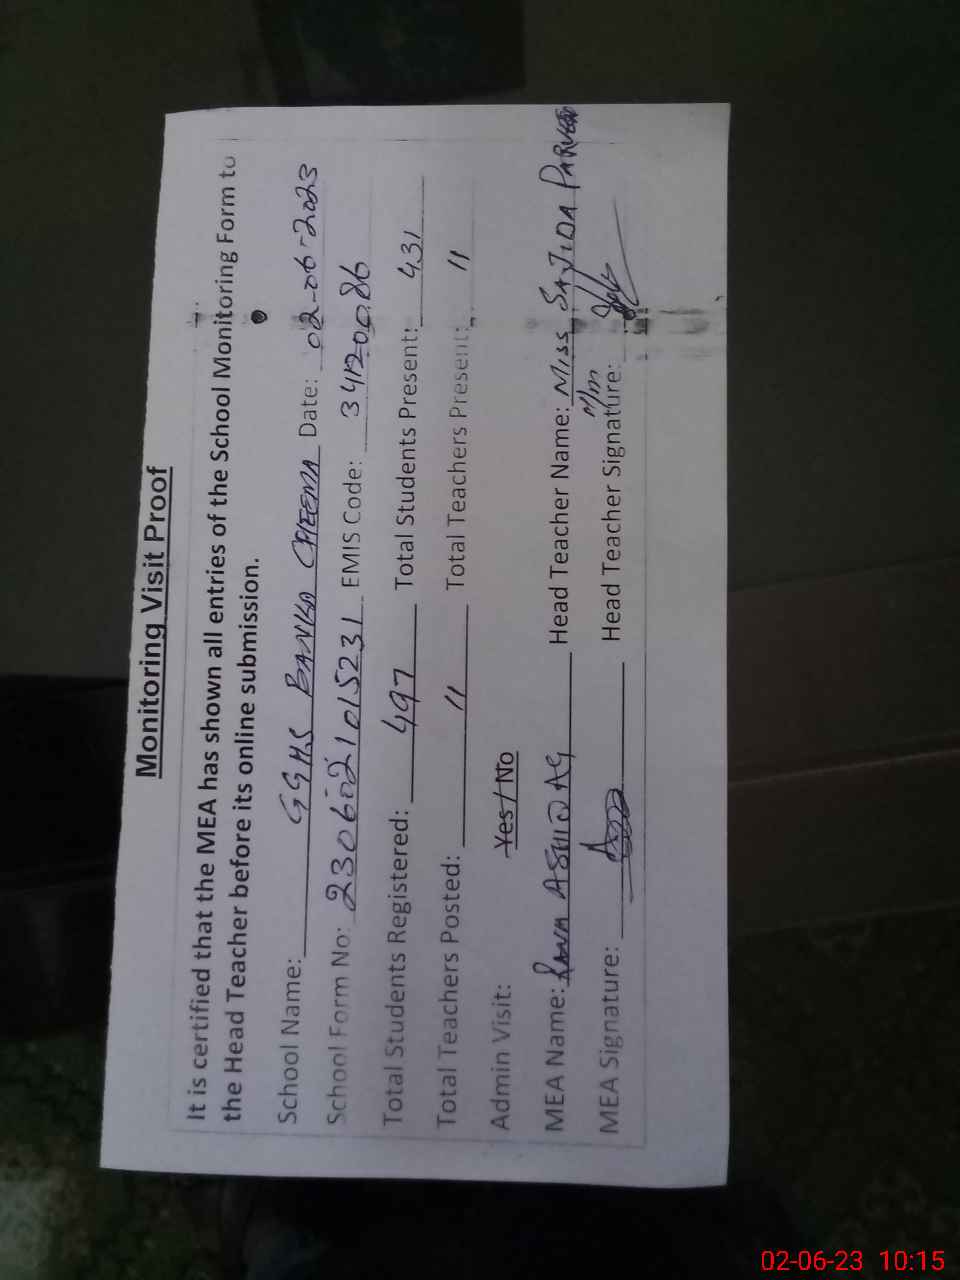 Monitoring Visit Proof
It is certified that the MEA has shown all entries of the School Monitoring Form to
the Head Teacher before its online submission.
School Name: GGHS BANKA CHEEMA Date: 02-06-2023
School Form No: 2306021015231 EMIS Code: 34120086
Total Students Registered: 497 Total Students Present: 431
Total Teachers Posted: 11 Total Teachers Present: 11
Admin Visit: Yes / No
MEA Name: RANA ASHFAQ Head Teacher Name: MISS SAJIDA PARVEEN
MEA Signature: Head Teacher Signature:
02-06-23 10:15